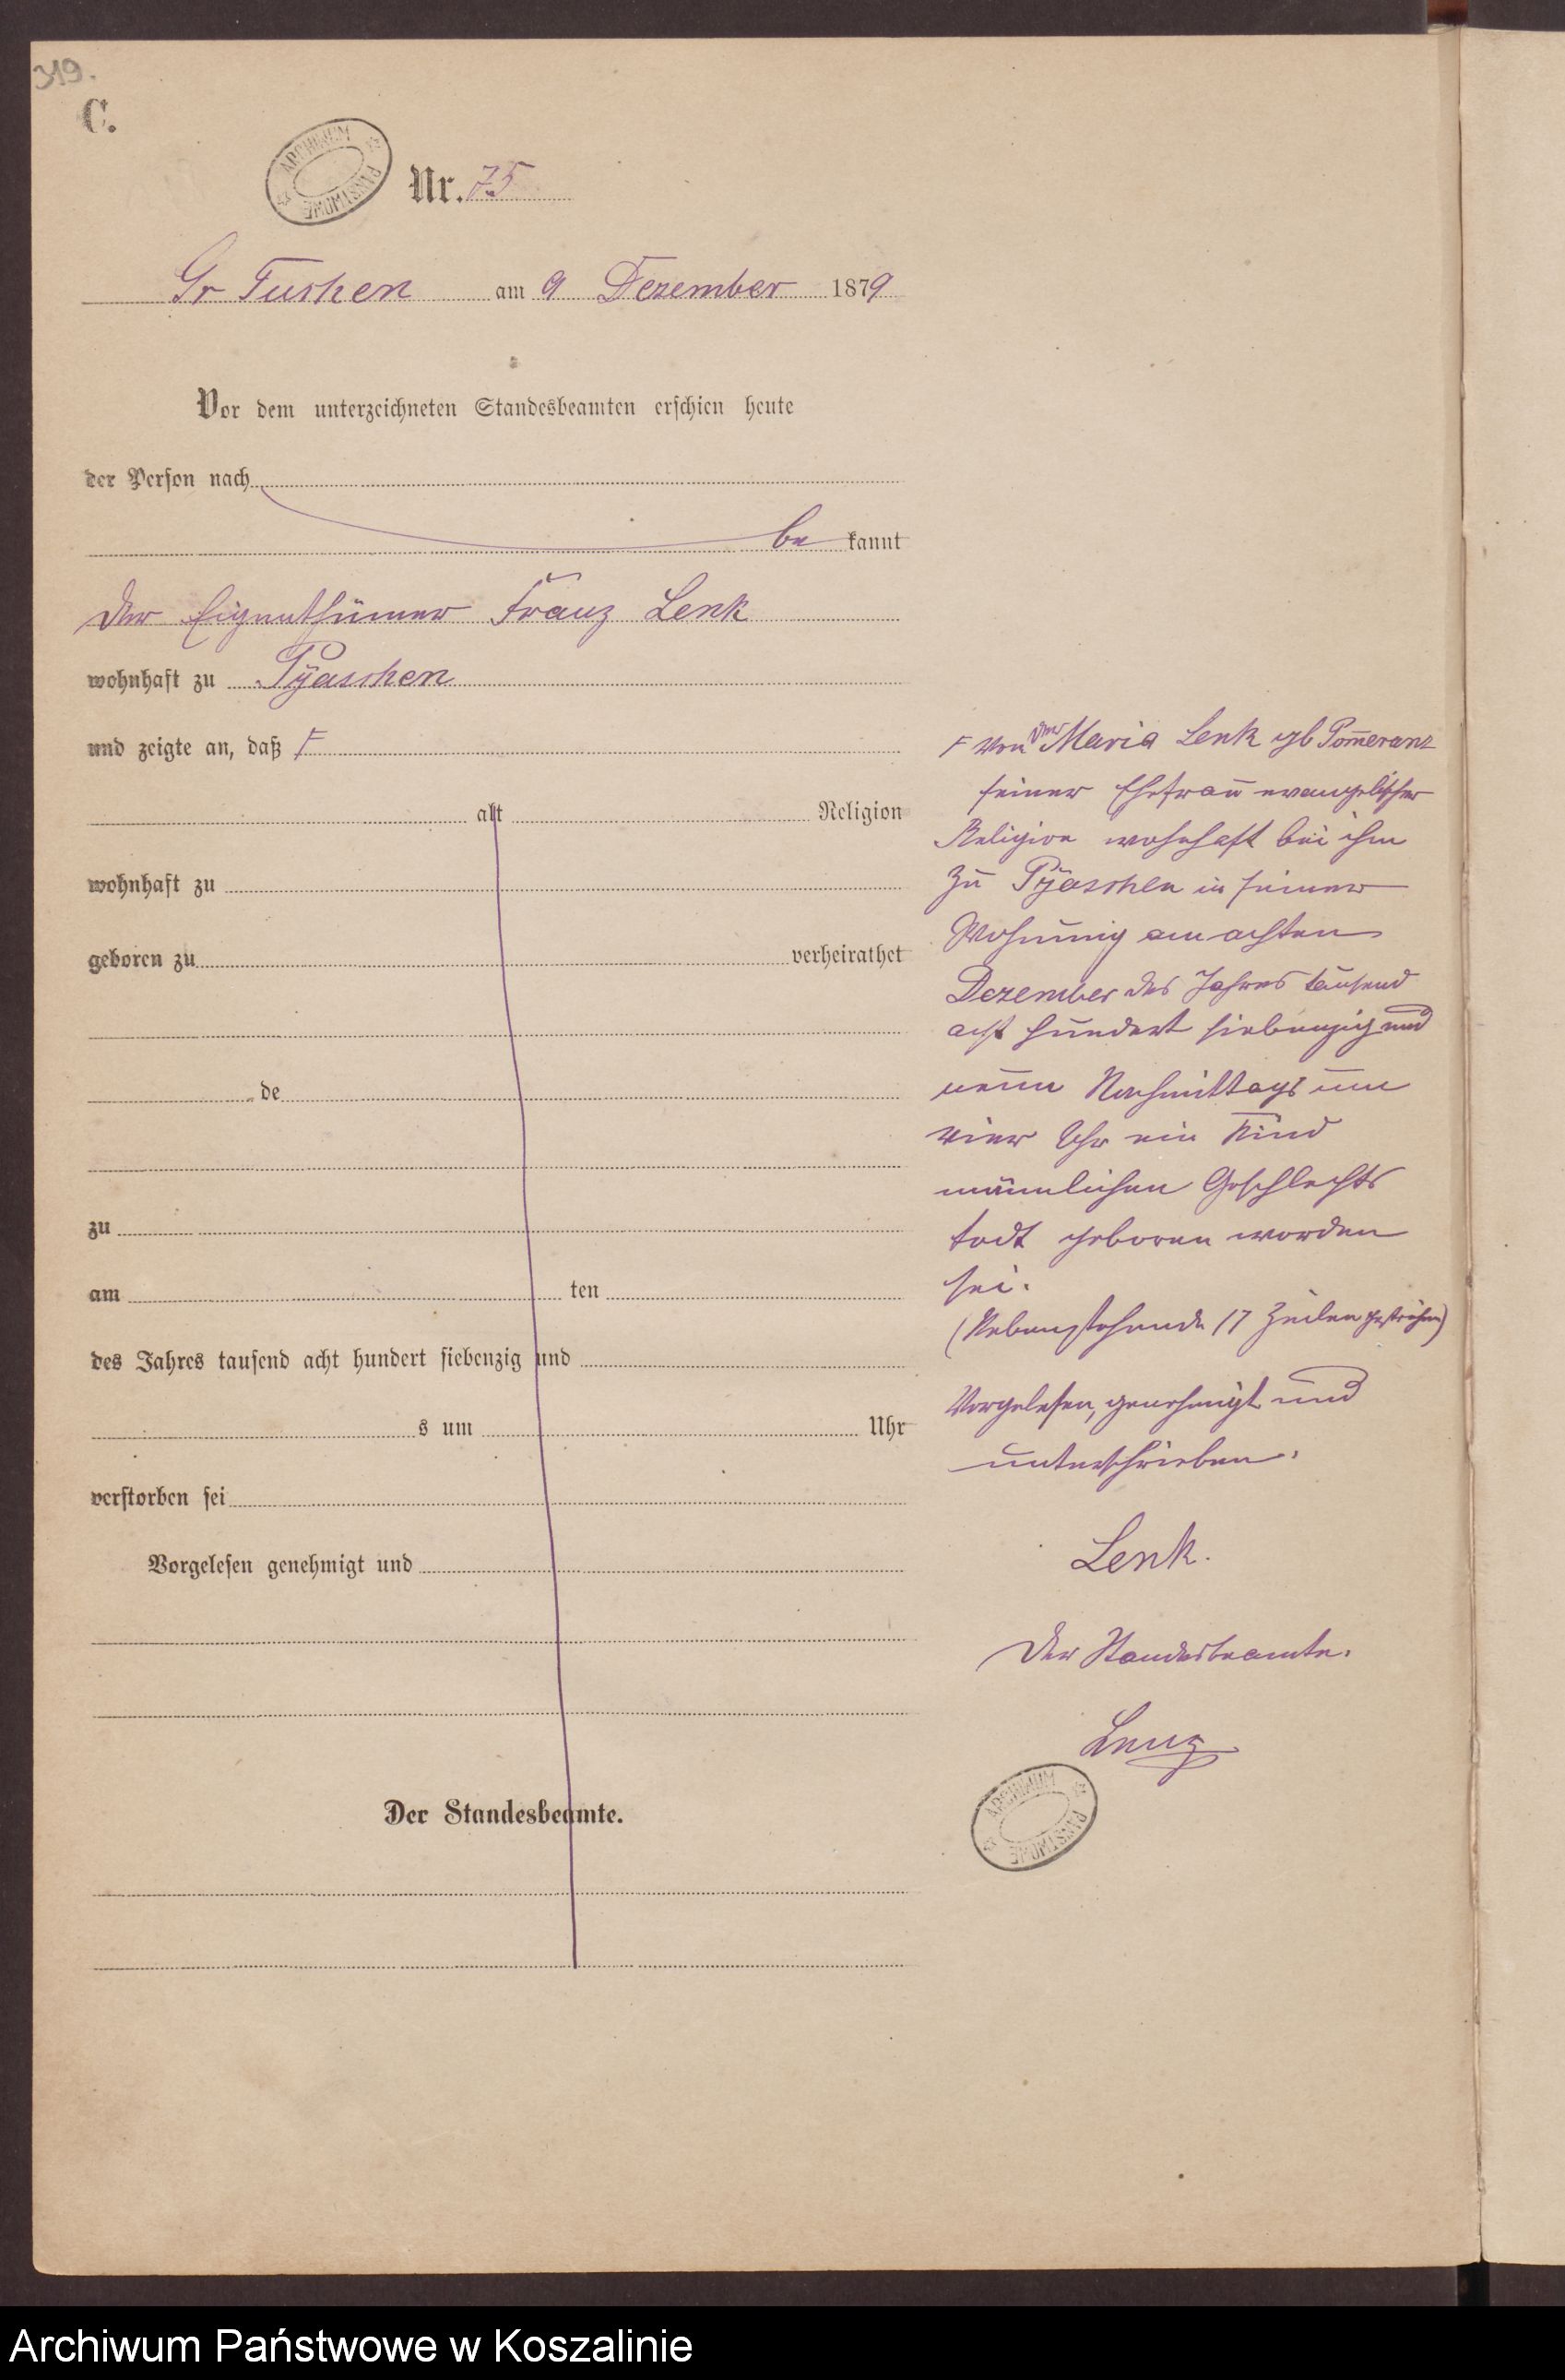 319.
C.
ARCHIWUM PAŃSTWOWE
Nr. 75
Gr Tuchen am 9 Dezember 1879
Vor dem unterzeichneten Standesbeamten erschien heute
der Person nach
be kannt
der Eigenthümer Franz Lenk
wohnhaft zu Pyaschen
und zeigte an, daß F
alt Religion
wohnhaft zu
geboren zu verheirathet
de
zu
am ten
des Jahres tausend acht hundert siebenzig und
s um Uhr
verstorben sei
Vorgelesen genehmigt und
Der Standesbeamte.
F von der Maria Lenk gb Pom̄eranz
seiner Ehefrau evangelischer
Religion wohnhaft bei ihm
zu Pyaschen in seiner
Wohnung am achten
Dezember des Jahres tausend
acht hundert siebenzig und
neun Nachmittags um
vier Uhr ein Kind
männlichen Geschlechts
todt geboren worden
sei.
(Nebenstehende 17 Zeilen gestrichen)
Vorgelesen, genehmigt und
unterschrieben.
Lenk.
Der Standesbeamte.
Lenz
ARCHIWUM PAŃSTWOWE
Archiwum Państwowe w Koszalinie